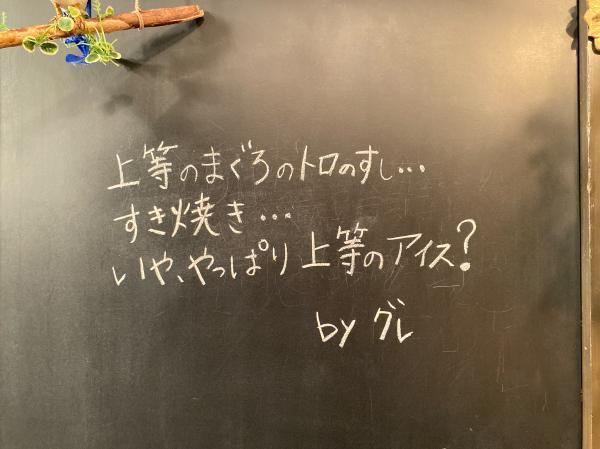 上等のまぐろのトロのすし…
すき焼き…
いや、やっぱり上等のアイス?
by グレ